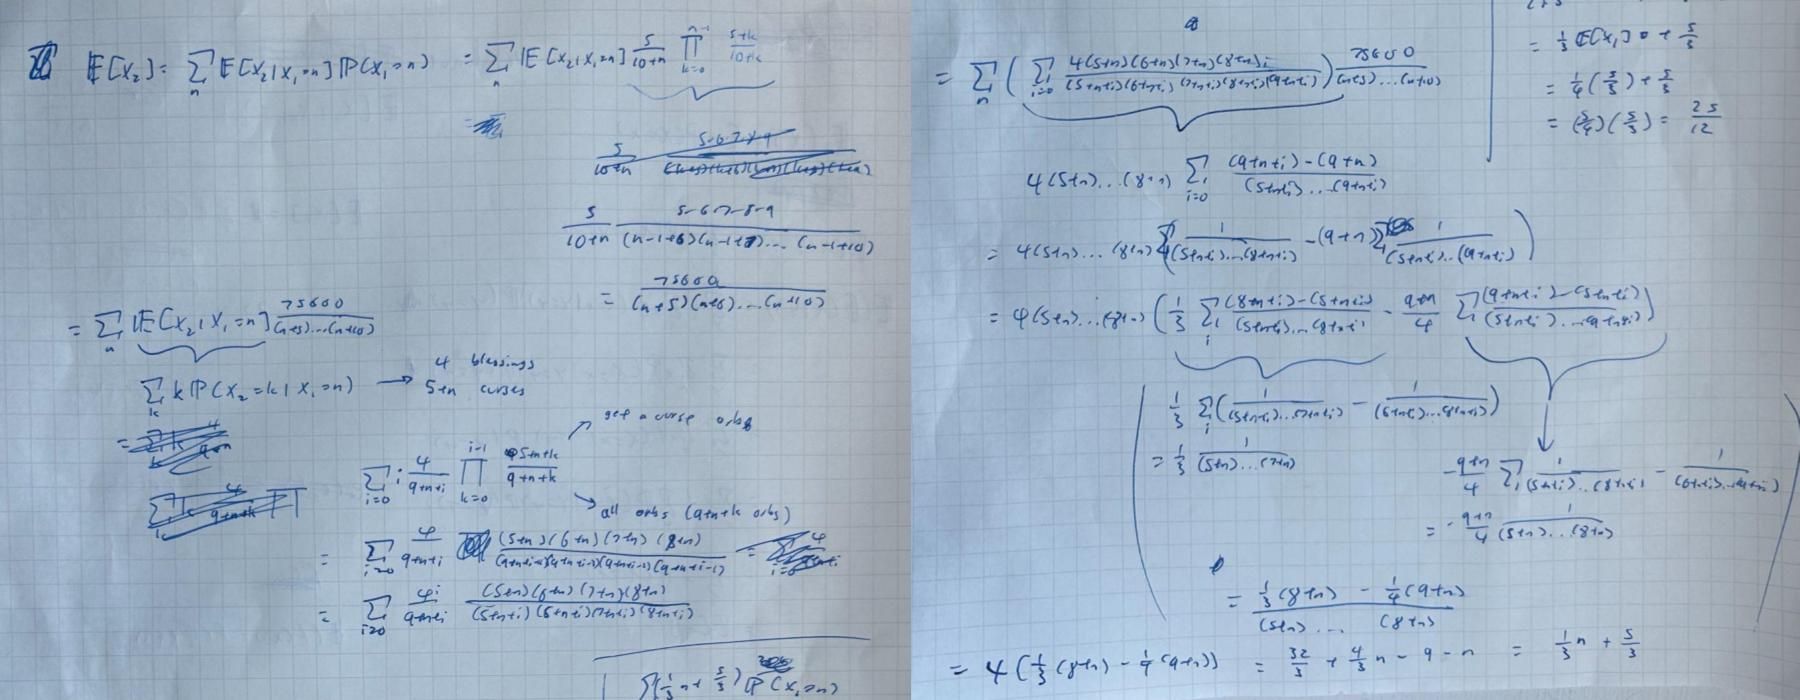 E[X₂] = ∑_n E[X₂|X₁=n] P(X₁=n) = ∑_n E[X₂|X₁=n] 5/(10+n) ∏_{k=0}^{n-1} (5+k)/(10+k)
5/(10+n) (5·6·7·8·9)/((n-1+6)(n-1+7)...(n-1+10))
= 75600/((n+5)(n+6)...(n+10))
= ∑_n E[X₂|X₁=n] 75600/((n+5)...(n+10))
∑_k k P(X₂=k|X₁=n) → 4 blessings
5+n curses
→ get a curse orb
∑_{i=0} i 4/(9+n+i) ∏_{k=0}^{i-1} (5+n+k)/(9+n+k)
→ all orbs (9+n+k orbs)
= ∑_{i=0} 4/(9+n+i) ((5+n)(6+n)(7+n)(8+n))/
= ∑_{i=0} 4i/(9+n+i) ((5+n)(6+n)(7+n)(8+n))/((5+n+i)(6+n+i)(7+n+i)(8+n+i))
∑(1/3 n + 5/3) P(X₁=n)
= 1/3 E[X₁] + 5/3
= 1/4 (5/3) + 5/3
= (5/4)(5/3) = 25/12
= ∑_n (∑_{i=0} (4(5+n)(6+n)(7+n)(8+n)i)/((5+n+i)(6+n+i)(7+n+i)(8+n+i)(9+n+i))) 75600/((n+5)...(n+10))
4(5+n)...(8+n) ∑_{i=0} ((9+n+i)-(9+n))/((5+n+i)...(9+n+i))
= 4(5+n)...(8+n) (∑ 1/((5+n+i)...(8+n+i)) - (9+n) ∑ 1/((5+n+i)...(9+n+i)))
= 4(5+n)...(8+n) (1/3 ∑_i ((8+n+i)-(5+n+i))/((5+n+i)...(8+n+i)) - (9+n)/4 ∑ ((9+n+i)-(5+n+i))/((5+n+i)...(9+n+i)))
1/3 ∑_i (1/((5+n+i)...(7+n+i)) - 1/((6+n+i)...(8+n+i)))
= 1/3 1/((5+n)...(7+n))
- (9+n)/4 ∑ 1/((5+n+i)...(8+n+i)) - 1/((6+n+i)...(9+n+i))
= - (9+n)/4 1/((5+n)...(8+n))
= (1/3(8+n) - 1/4(9+n))/((5+n)...(8+n))
= 4(1/3(8+n) - 1/4(9+n)) = 32/3 + 4/3 n - 9 - n = 1/3 n + 5/3